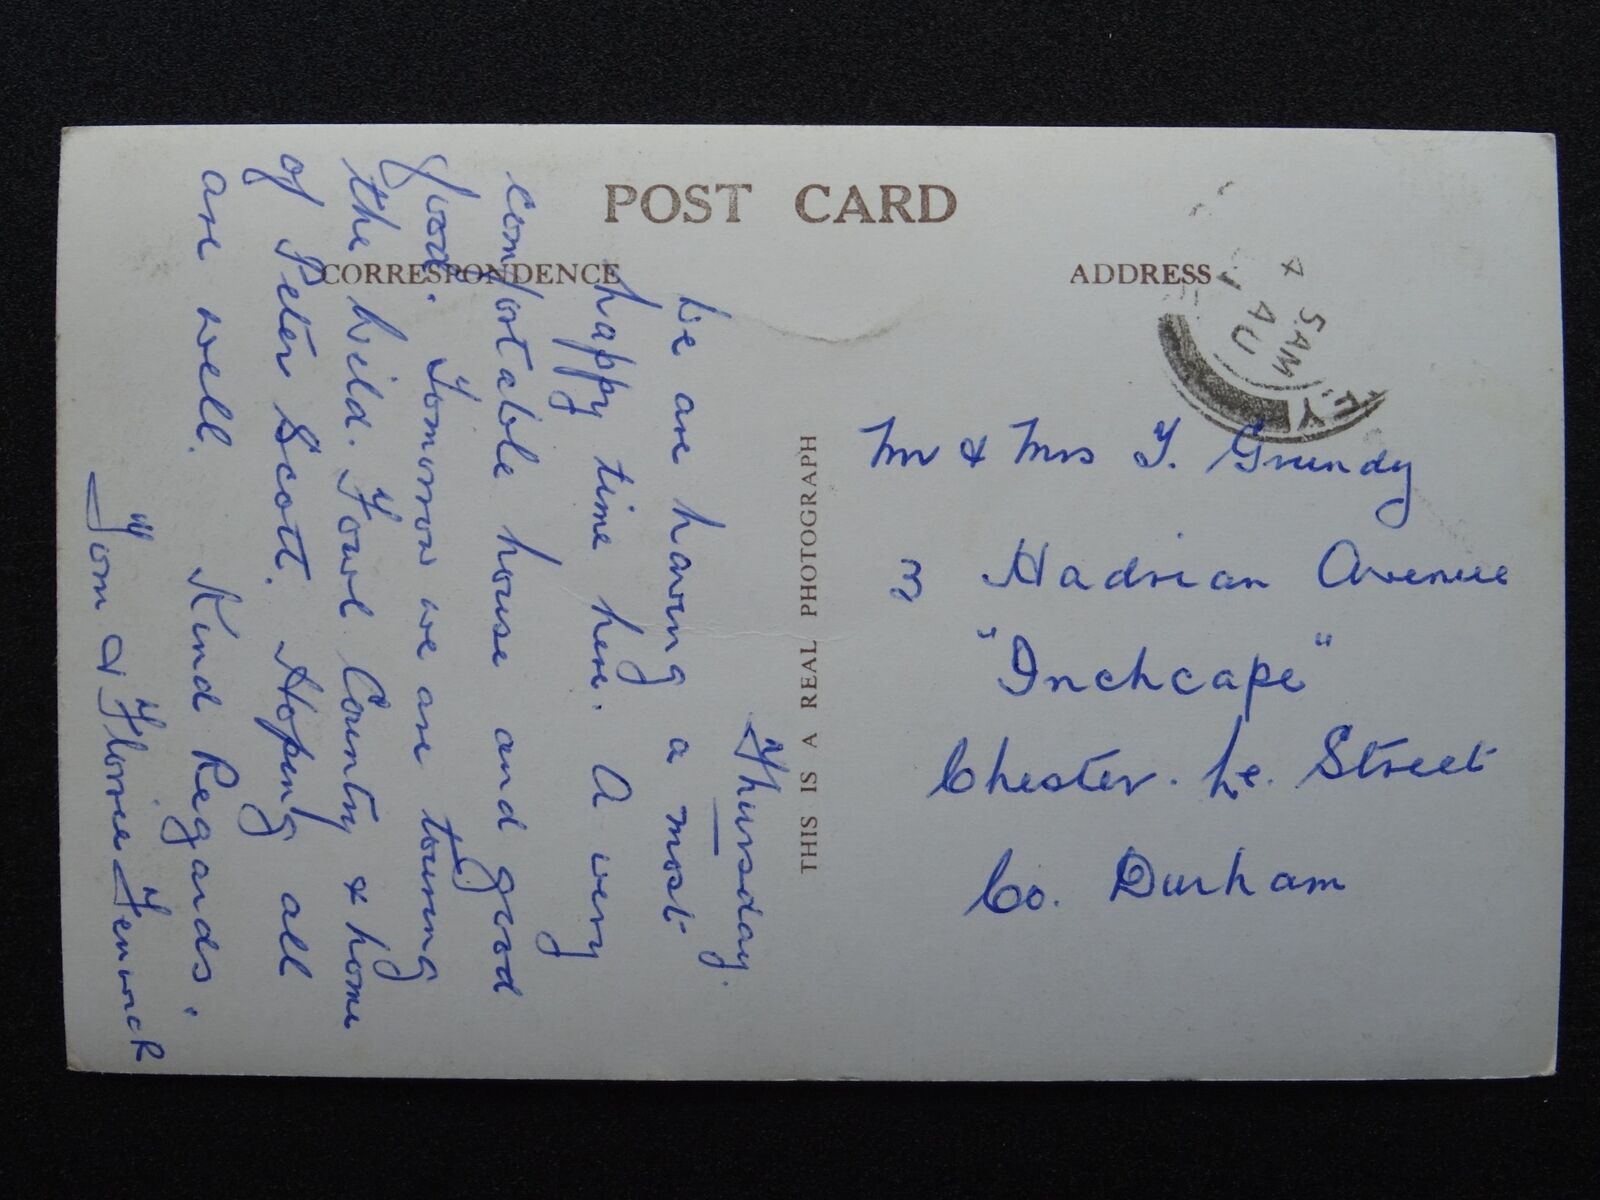 POST CARD
CORRESPONDENCE
ADDRESS
THIS IS A REAL PHOTOGRAPH
Thursday.
We are having a most
happy time here. A very
comfortable house and good
food. Tomorrow we are touring
the Wild. Fowl County & home
of Peter Scott. Hoping all
are well. Kind Regards.
Tom & Florrie Fenwick
5 AM
4 AU
EY
Mr & Mrs T. Grundy
3 Hadrian Avenue
"Inchcape"
Chester. Le. Street
Co. Durham